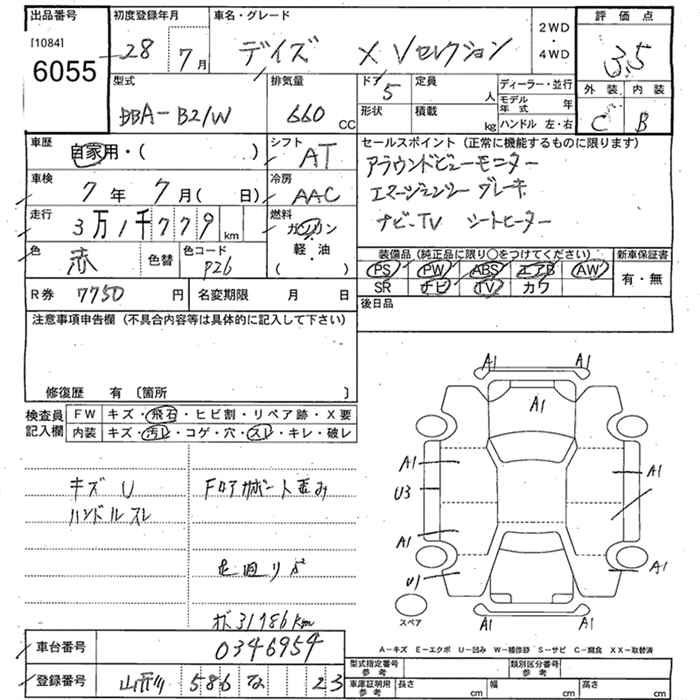 出品番号
[1084]
6055
初度登録年月
28年 7月
車名・グレード
デイズ X Vセレクション
2WD
・
4WD
評価点
3.5
外装 内装
C B
型式
DBA-B21W
排気量
660 cc
ドア
5
形状
定員
人
積載
kg
ディーラー・並行
モデル年式 年
ハンドル 左・右
車歴
自家用・( )
シフト
AT
車検
7年 7月( 日)
冷房
AAC
走行
3万1千779 km
燃料
ガソリン
・
軽・油
( )
色
赤
色替
色コード
P26
R券 7750 円
名変期限 月 日
セールスポイント(正常に機能するものに限ります)
アラウンドビューモニター
エマージェンシーブレーキ
ナビ、TV シートヒーター
装備品(純正品に限り○をつけてください)
PS PW ABS エアB AW
SR ナビ TV カワ
新車保証書
有・無
後日品
注意事項申告欄(不具合内容等は具体的に記入して下さい)
修復歴 有 〔箇所 〕
検査員
記入欄
FW キズ・飛石・ヒビ割・リペア跡・X要
内装 キズ・汚レ・コゲ・穴・スレ・キレ・破レ
キズ U
ハンドルスレ
Fロアサポート歪み
足回りサビ
31786km
車台番号
0346954
登録番号
586 な 23
A1 A1
A1
A1 A1
U3
A1
U1 A1
A1 A1
スペア
A−キズ E−エクボ U−凹み W−補修跡 S−サビ C−腐食 XX−取替済
型式指定番号
参考
類別区分番号
参考
車庫証明用
参考
長さ cm 幅 cm 高さ cm